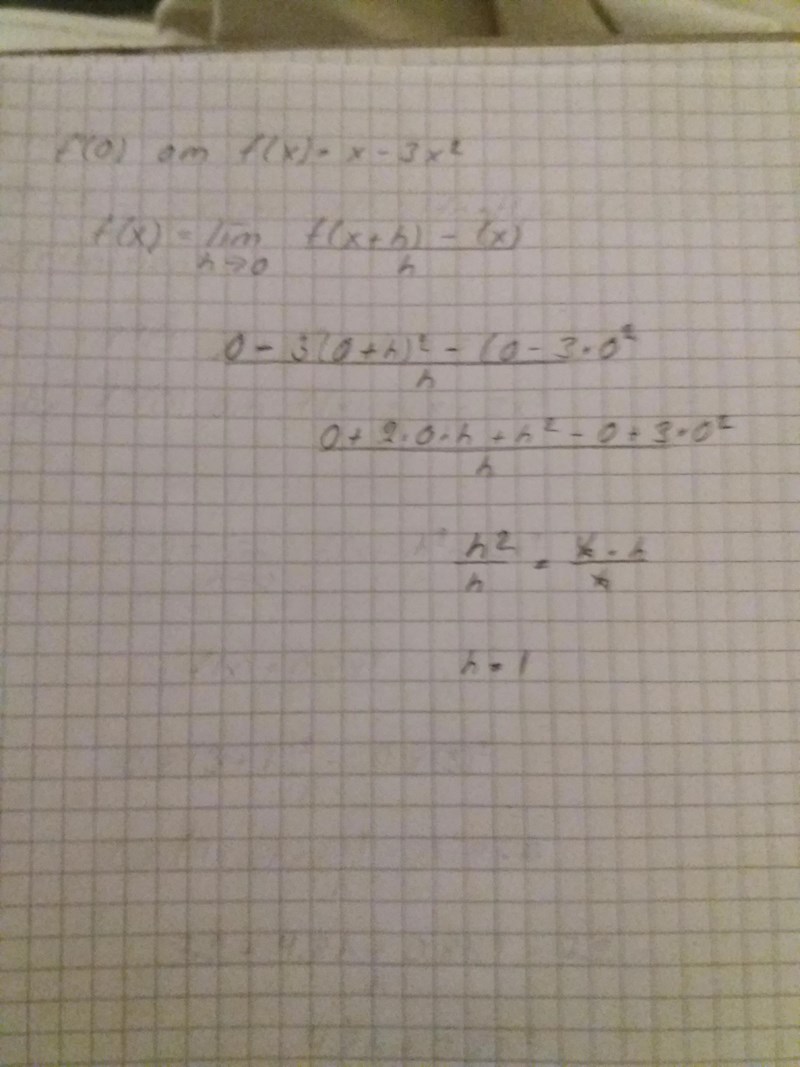 f'(0) om f(x) = x - 3x²
f'(x) = lim h→0 f(x+h) - (x) / h
0 - 3(0+h)² - (0 - 3·0² / h
0 + 2·0·h + h² - 0 + 3·0² / h
h² / h = h · h / h
h = 1